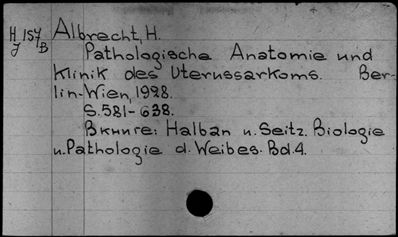 H 157 Albrecht, H.
J B
Pathologische Anatomie und
Klinik des Uterussarkoms. Ber-
lin-Wien, 1928.
S.581-638.
Вкниге: Halban u. Seitz. Biologie
u. Pathologie d. Weibes. Bd.4.